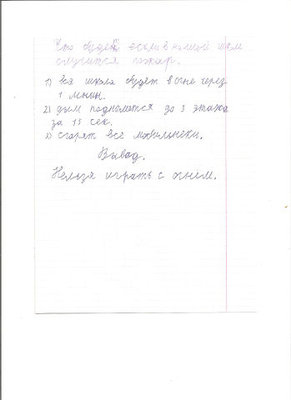 Что будет если в нашей шко
случится пожар.
1) Вся школа будет в огне через
1 минут.
2) дым поднимется до 3 этажа
за 15 сек.
3) сгорят все мобильники.
Вывод.
Нельзя играть с огнём.